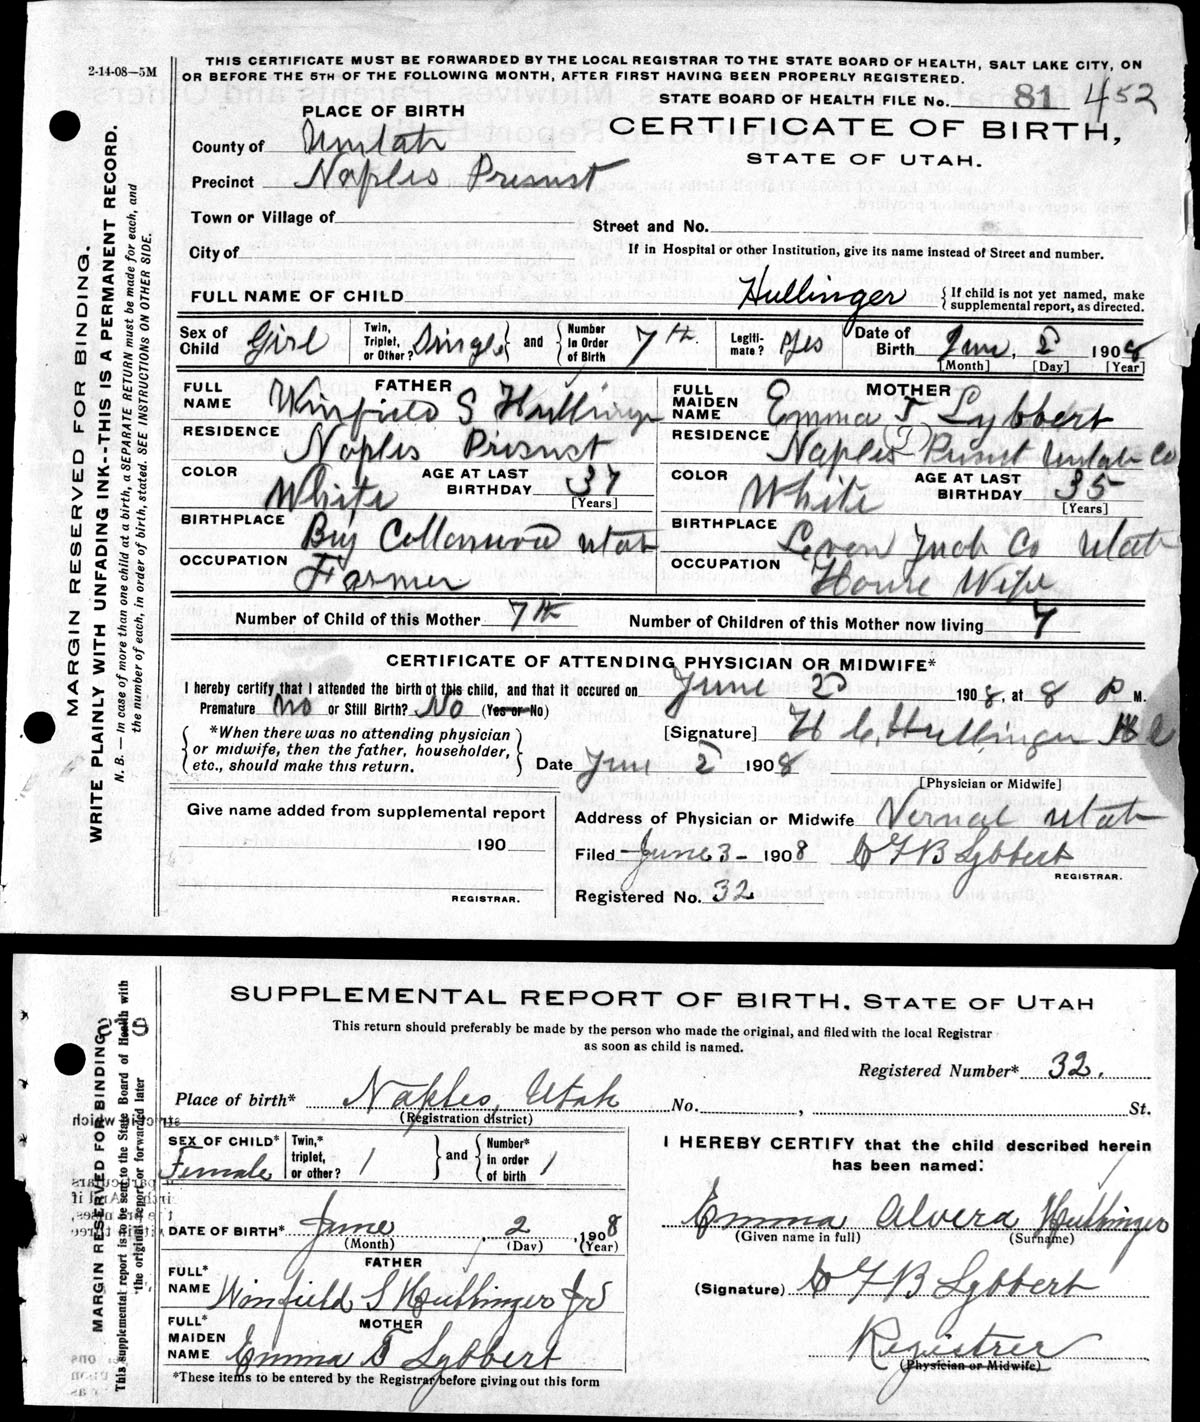 2-14-08—5M
THIS CERTIFICATE MUST BE FORWARDED BY THE LOCAL REGISTRAR TO THE STATE BOARD OF HEALTH, SALT LAKE CITY, ON
OR BEFORE THE 5TH OF THE FOLLOWING MONTH, AFTER FIRST HAVING BEEN PROPERLY REGISTERED.
STATE BOARD OF HEALTH FILE No. 81 452
PLACE OF BIRTH
CERTIFICATE OF BIRTH,
STATE OF UTAH.
County of Uintah
Precinct Naples Presnst
Town or Village of
Street and No.
City of
If in Hospital or other Institution, give its name instead of Street and number.
FULL NAME OF CHILD Hullinger {If child is not yet named, make supplemental report, as directed.
Sex of Child Girl Twin, Triplet, or Other? Single } and { Number in Order of Birth 7th Legiti- mate? Yes Date of Birth June, 2 1908
[Month] [Day] [Year]
FATHER
FULL NAME Winfield S Hullinger
RESIDENCE Naples Presnst
COLOR White AGE AT LAST BIRTHDAY 37
[Years]
BIRTHPLACE Big Cottonwood Utah
OCCUPATION Farmer
MOTHER
FULL MAIDEN NAME Emma T Lybbert
RESIDENCE Naples Presnst Uintah Co
COLOR White AGE AT LAST BIRTHDAY 35
[Years]
BIRTHPLACE Levan Juab Co Utah
OCCUPATION House Wife
Number of Child of this Mother 7th Number of Children of this Mother now living 7
CERTIFICATE OF ATTENDING PHYSICIAN OR MIDWIFE*
I hereby certify that I attended the birth of this child, and that it occured on June 2 1908, at 8 P M.
Premature No or Still Birth? No (Yes or No)
[Signature] H C Hullinger
{*When there was no attending physician
or midwife, then the father, householder,
etc., should make this return.}
Date June 2 1908
[Physician or Midwife]
Give name added from supplemental report
190
REGISTRAR.
Address of Physician or Midwife Vernal Utah
Filed June 3 - 1908 C F B Lybbert
REGISTRAR.
Registered No. 32
MARGIN RESERVED FOR BINDING.
WRITE PLAINLY WITH UNFADING INK--THIS IS A PERMANENT RECORD.
N. B. — In case of more than one child at a birth, a SEPARATE RETURN must be made for each, and
the number of each, in order of birth, stated. SEE INSTRUCTIONS ON OTHER SIDE.
SUPPLEMENTAL REPORT OF BIRTH, STATE OF UTAH
This return should preferably be made by the person who made the original, and filed with the local Registrar
as soon as child is named.
Registered Number* 32.
Place of birth* Naples, Utah No. , St.
(Registration district)
SEX OF CHILD* Female Twin,* triplet, or other? 1 } and { Number* in order of birth 1
DATE OF BIRTH* June 2, 1908
(Month) (Day) (Year)
FATHER
FULL* NAME Winfield S Hullinger Jr
MOTHER
FULL* MAIDEN NAME Emma T Lybbert
*These items to be entered by the Registrar before giving out this form
I HEREBY CERTIFY that the child described herein
has been named:
Emma Alvera Hullinger
(Given name in full) (Surname)
(Signature) C F B Lybbert
Registrer
(Physician or Midwife)
MARGIN RESERVED FOR BINDING
This supplemental report is to be sent to the State Board of Health with
the original report or forwarded later